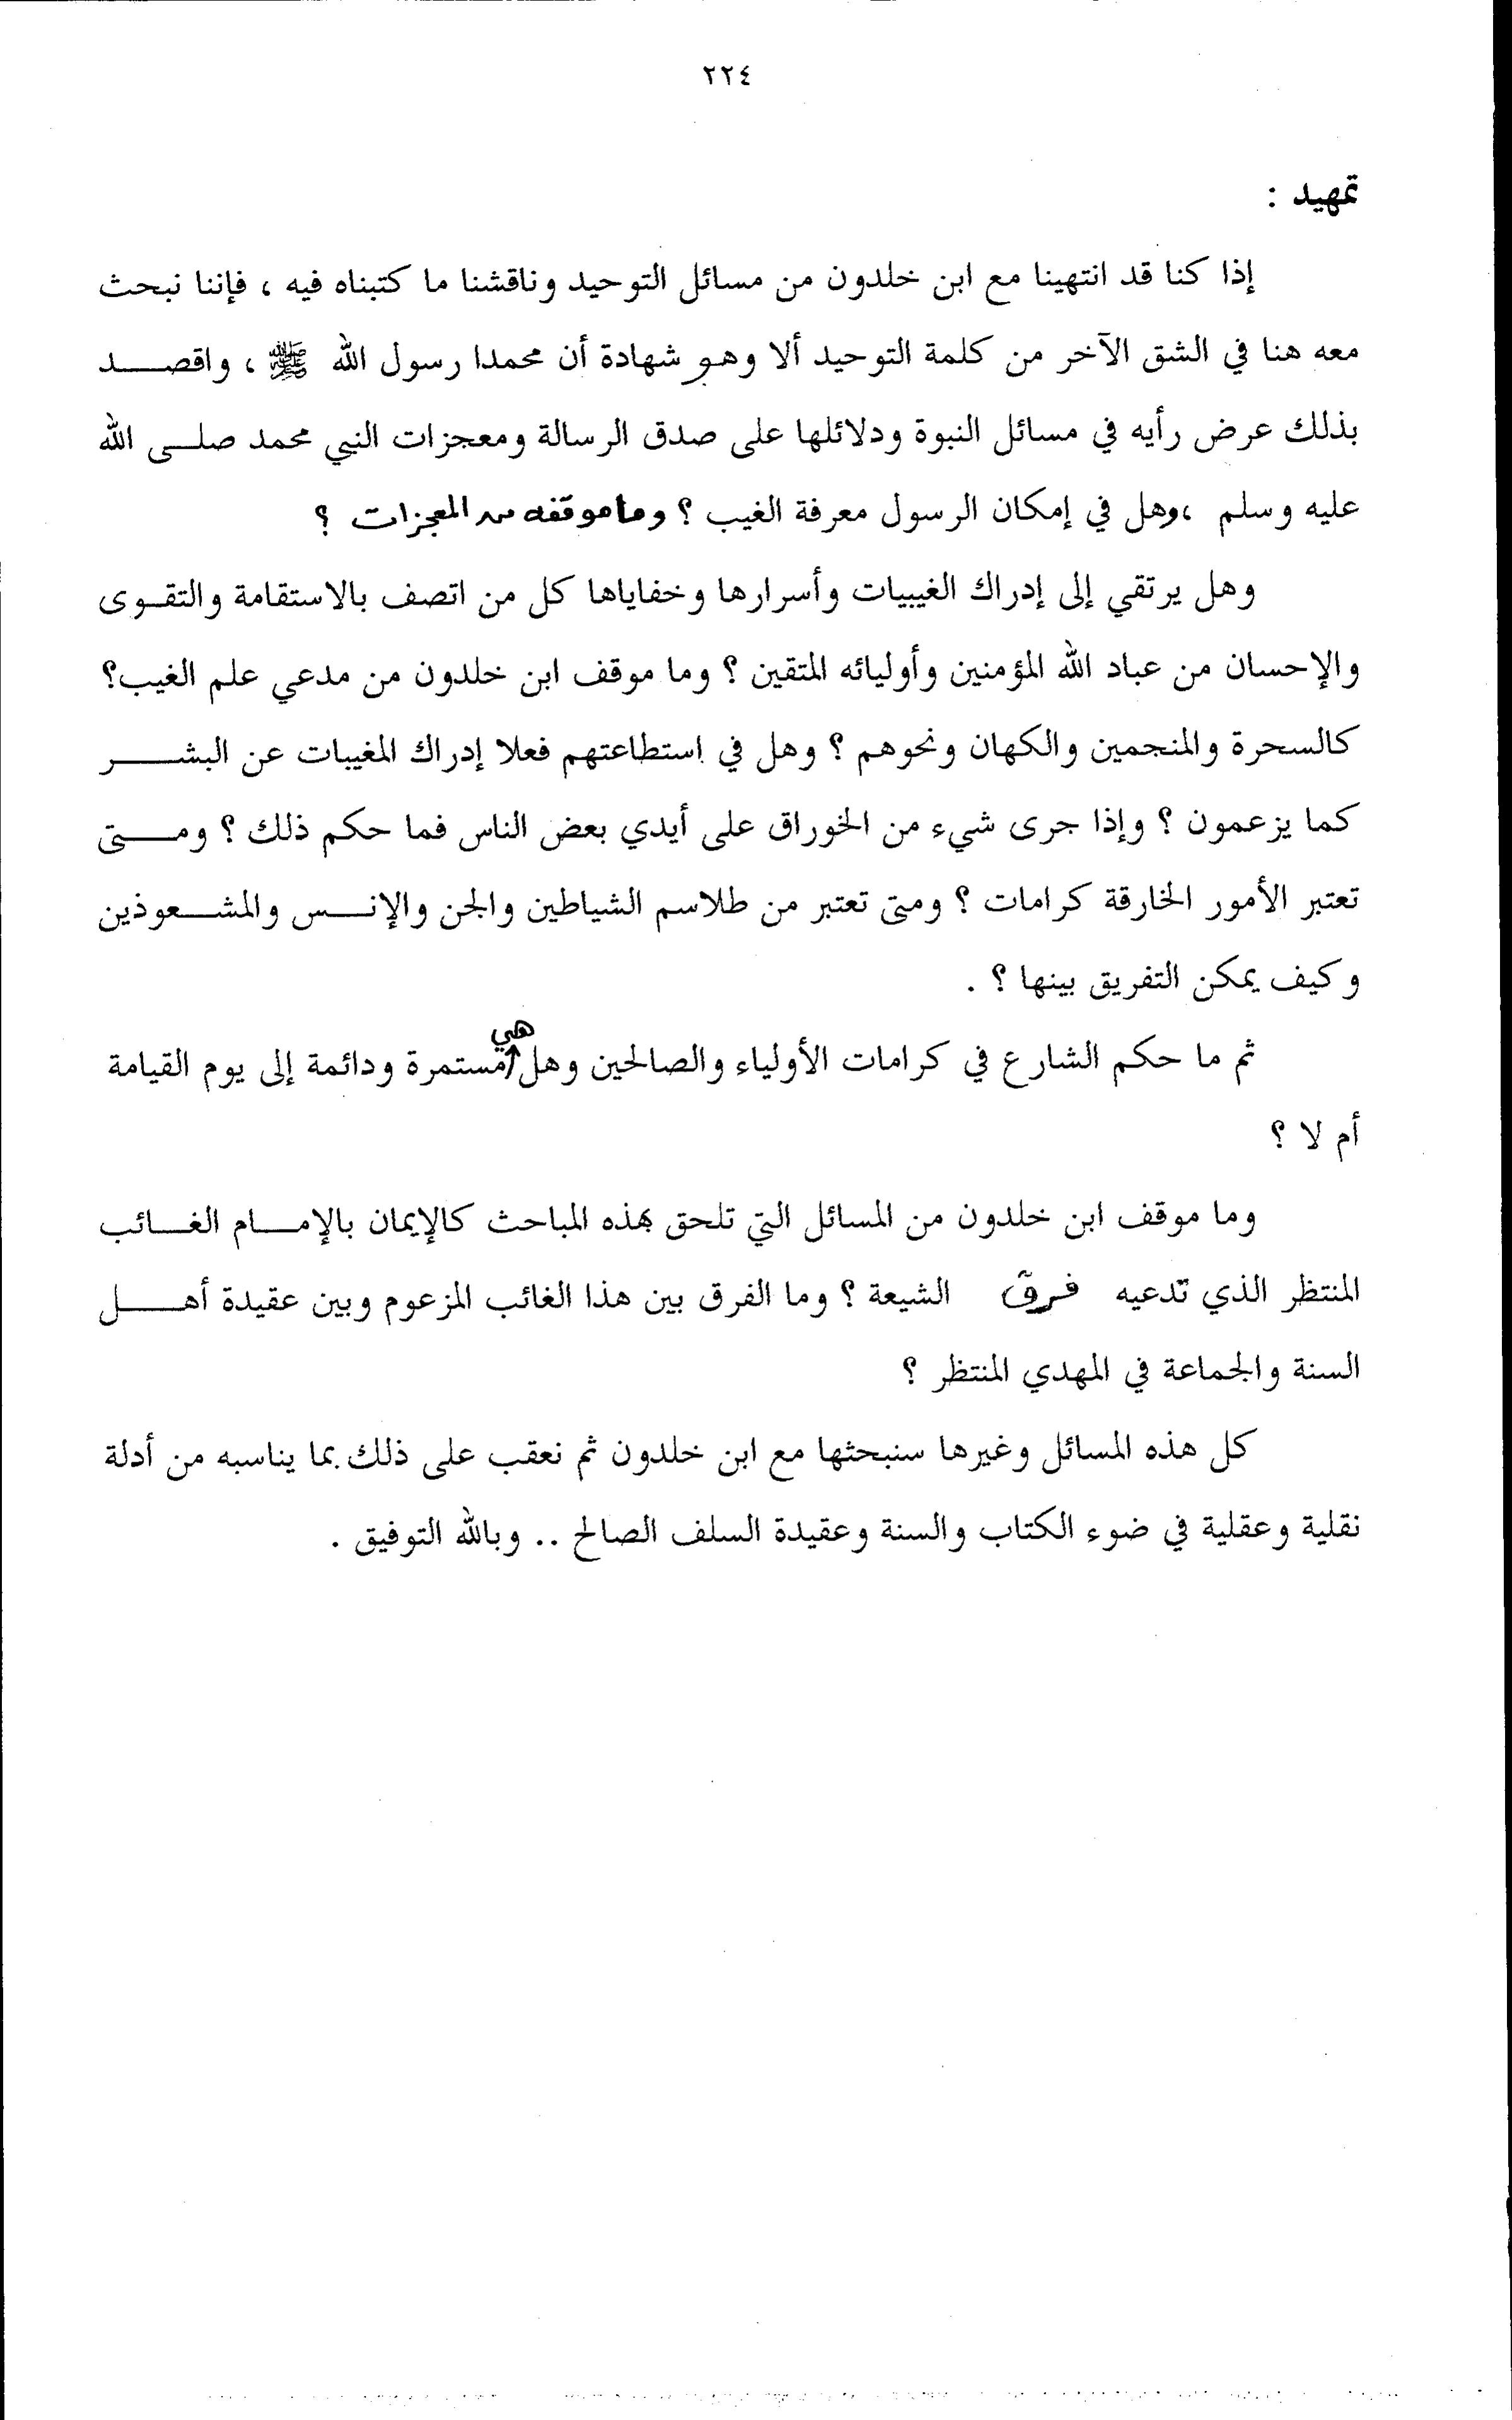 ٢٢٤
تمهيد :
إذا كنا قد انتهينا مع ابن خلدون من مسائل التوحيد وناقشنا ما كتبناه فيه ، فإننا نبحث
معه هنا في الشق الآخر من كلمة التوحيد ألا وهو شهادة أن محمدا رسول الله ﷺ ، واقصد
بذلك عرض رأيه في مسائل النبوة ودلائلها على صدق الرسالة ومعجزات النبي محمد صلى الله
عليه وسلم ،وهل في إمكان الرسول معرفة الغيب ؟ وما موقفه من المعجزات ؟
وهل يرتقي إلى إدراك الغيبيات وأسرارها وخفاياها كل من اتصف بالاستقامة والتقوى
والإحسان من عباد الله المؤمنين وأوليائه المتقين ؟ وما موقف ابن خلدون من مدعي علم الغيب؟
كالسحرة والمنجمين والكهان ونحوهم ؟ وهل في استطاعتهم فعلا إدراك المغيبات عن البشر
كما يزعمون ؟ وإذا جرى شيء من الخوراق على أيدي بعض الناس فما حكم ذلك ؟ ومتى
تعتبر الأمور الخارقة كرامات ؟ ومتى تعتبر من طلاسم الشياطين والجن والإنس والمشعوذين
وكيف يمكن التفريق بينها ؟ .
ثم ما حكم الشارع في كرامات الأولياء والصالحين وهل هي مستمرة ودائمة إلى يوم القيامة
أم لا ؟
وما موقف ابن خلدون من المسائل التي تلحق بهذه المباحث كالإيمان بالإمام الغائب
المنتظر الذي تدعيه فرق الشيعة ؟ وما الفرق بين هذا الغائب المزعوم وبين عقيدة أهل
السنة والجماعة في المهدي المنتظر ؟
كل هذه المسائل وغيرها سنبحثها مع ابن خلدون ثم نعقب على ذلك بما يناسبه من أدلة
نقلية وعقلية في ضوء الكتاب والسنة وعقيدة السلف الصالح .. وبالله التوفيق .